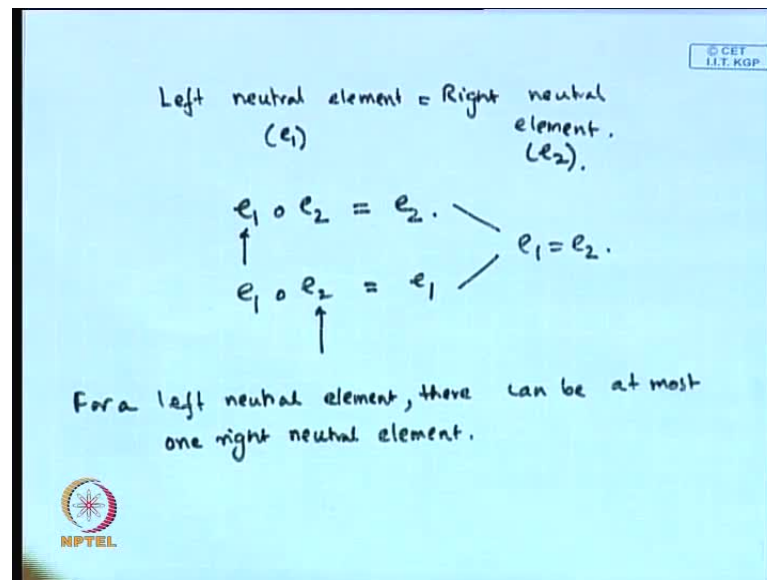 © CET
I.I.T. KGP
Left neutral element = Right neutral element.
(e1) (e2).
e1 o e2 = e2.
e1 = e2.
e1 o e2 = e1
For a left neutral element, there can be at most
one right neutral element.
NPTEL